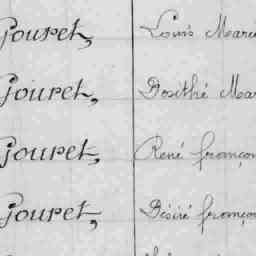 Gouret, Louis Marie
Gouret, Dosithé Mar
Gouret, René françoi
Gouret, Désiré franço